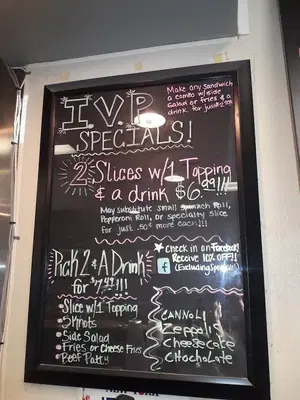 I.V.P.
SPECIALS!
Make any Sandwich
a combo w/side
Salad or fries & a
drink for just
2 Slices w/1 Topping
& a drink $6.99!!!
May substitute small Spinach Roll,
Pepperoni Roll, or specialty slice
for just .50¢ more each!!!
Pick 2 & A Drink
for $7.49!!!
• Slice w/1 Topping
• 2 Knots
• Side Salad
• Fries or Cheese Fries
• Beef Patty
★ check in on Facebook!
f Receive 10% OFF!!
(Excluding Specials)
CANNOLI
Zeppolis
Cheesecake
CHOCHOLATE